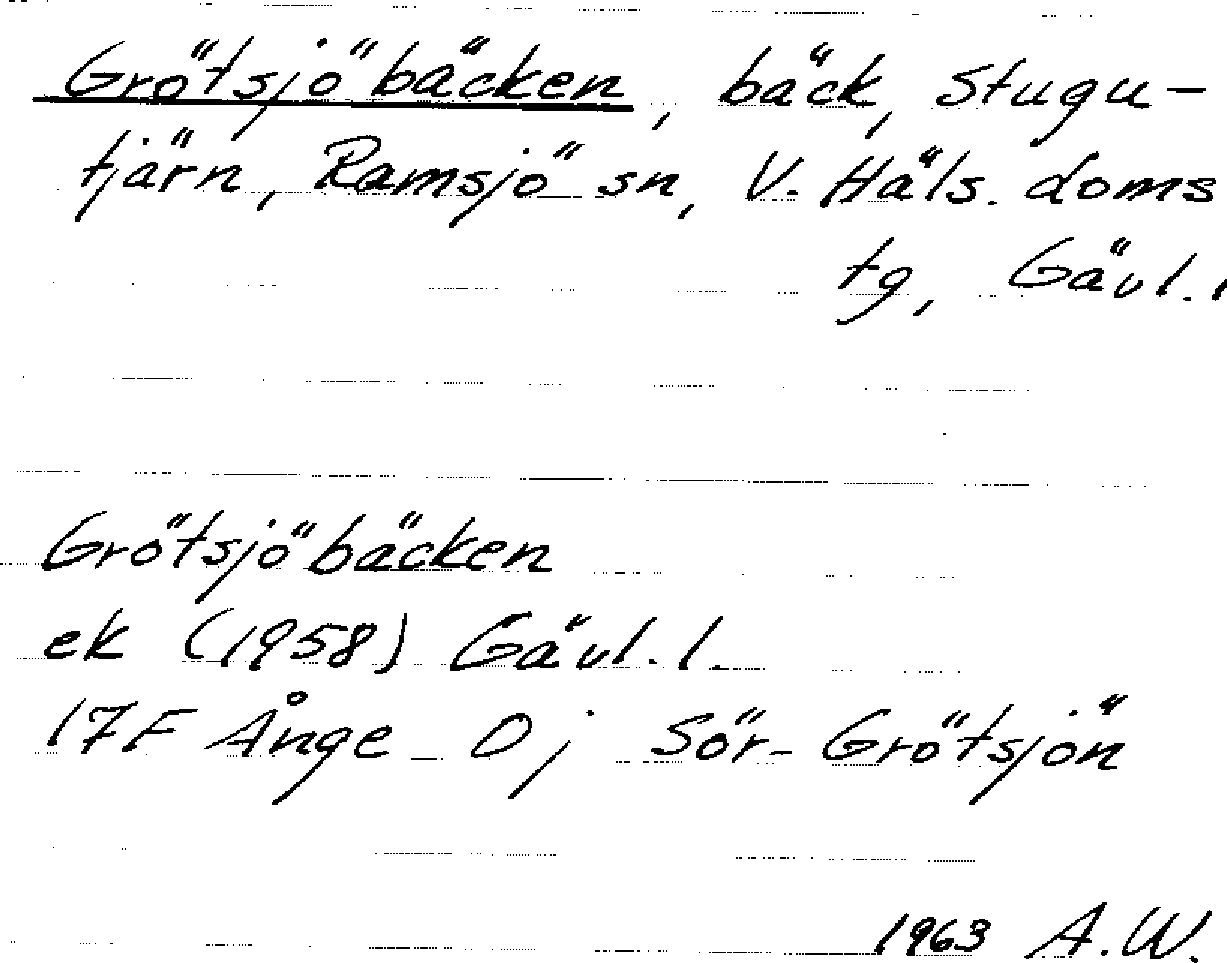 Grötsjöbäcken, bäck, Stugu-
tjärn, Ramsjö sn, V. Häls. doms
tg, Gävl. l
Grötsjöbäcken
ek (1958) Gävl. l.
17F Ånge 0j Sör-Grötsjön
1963 A.W.